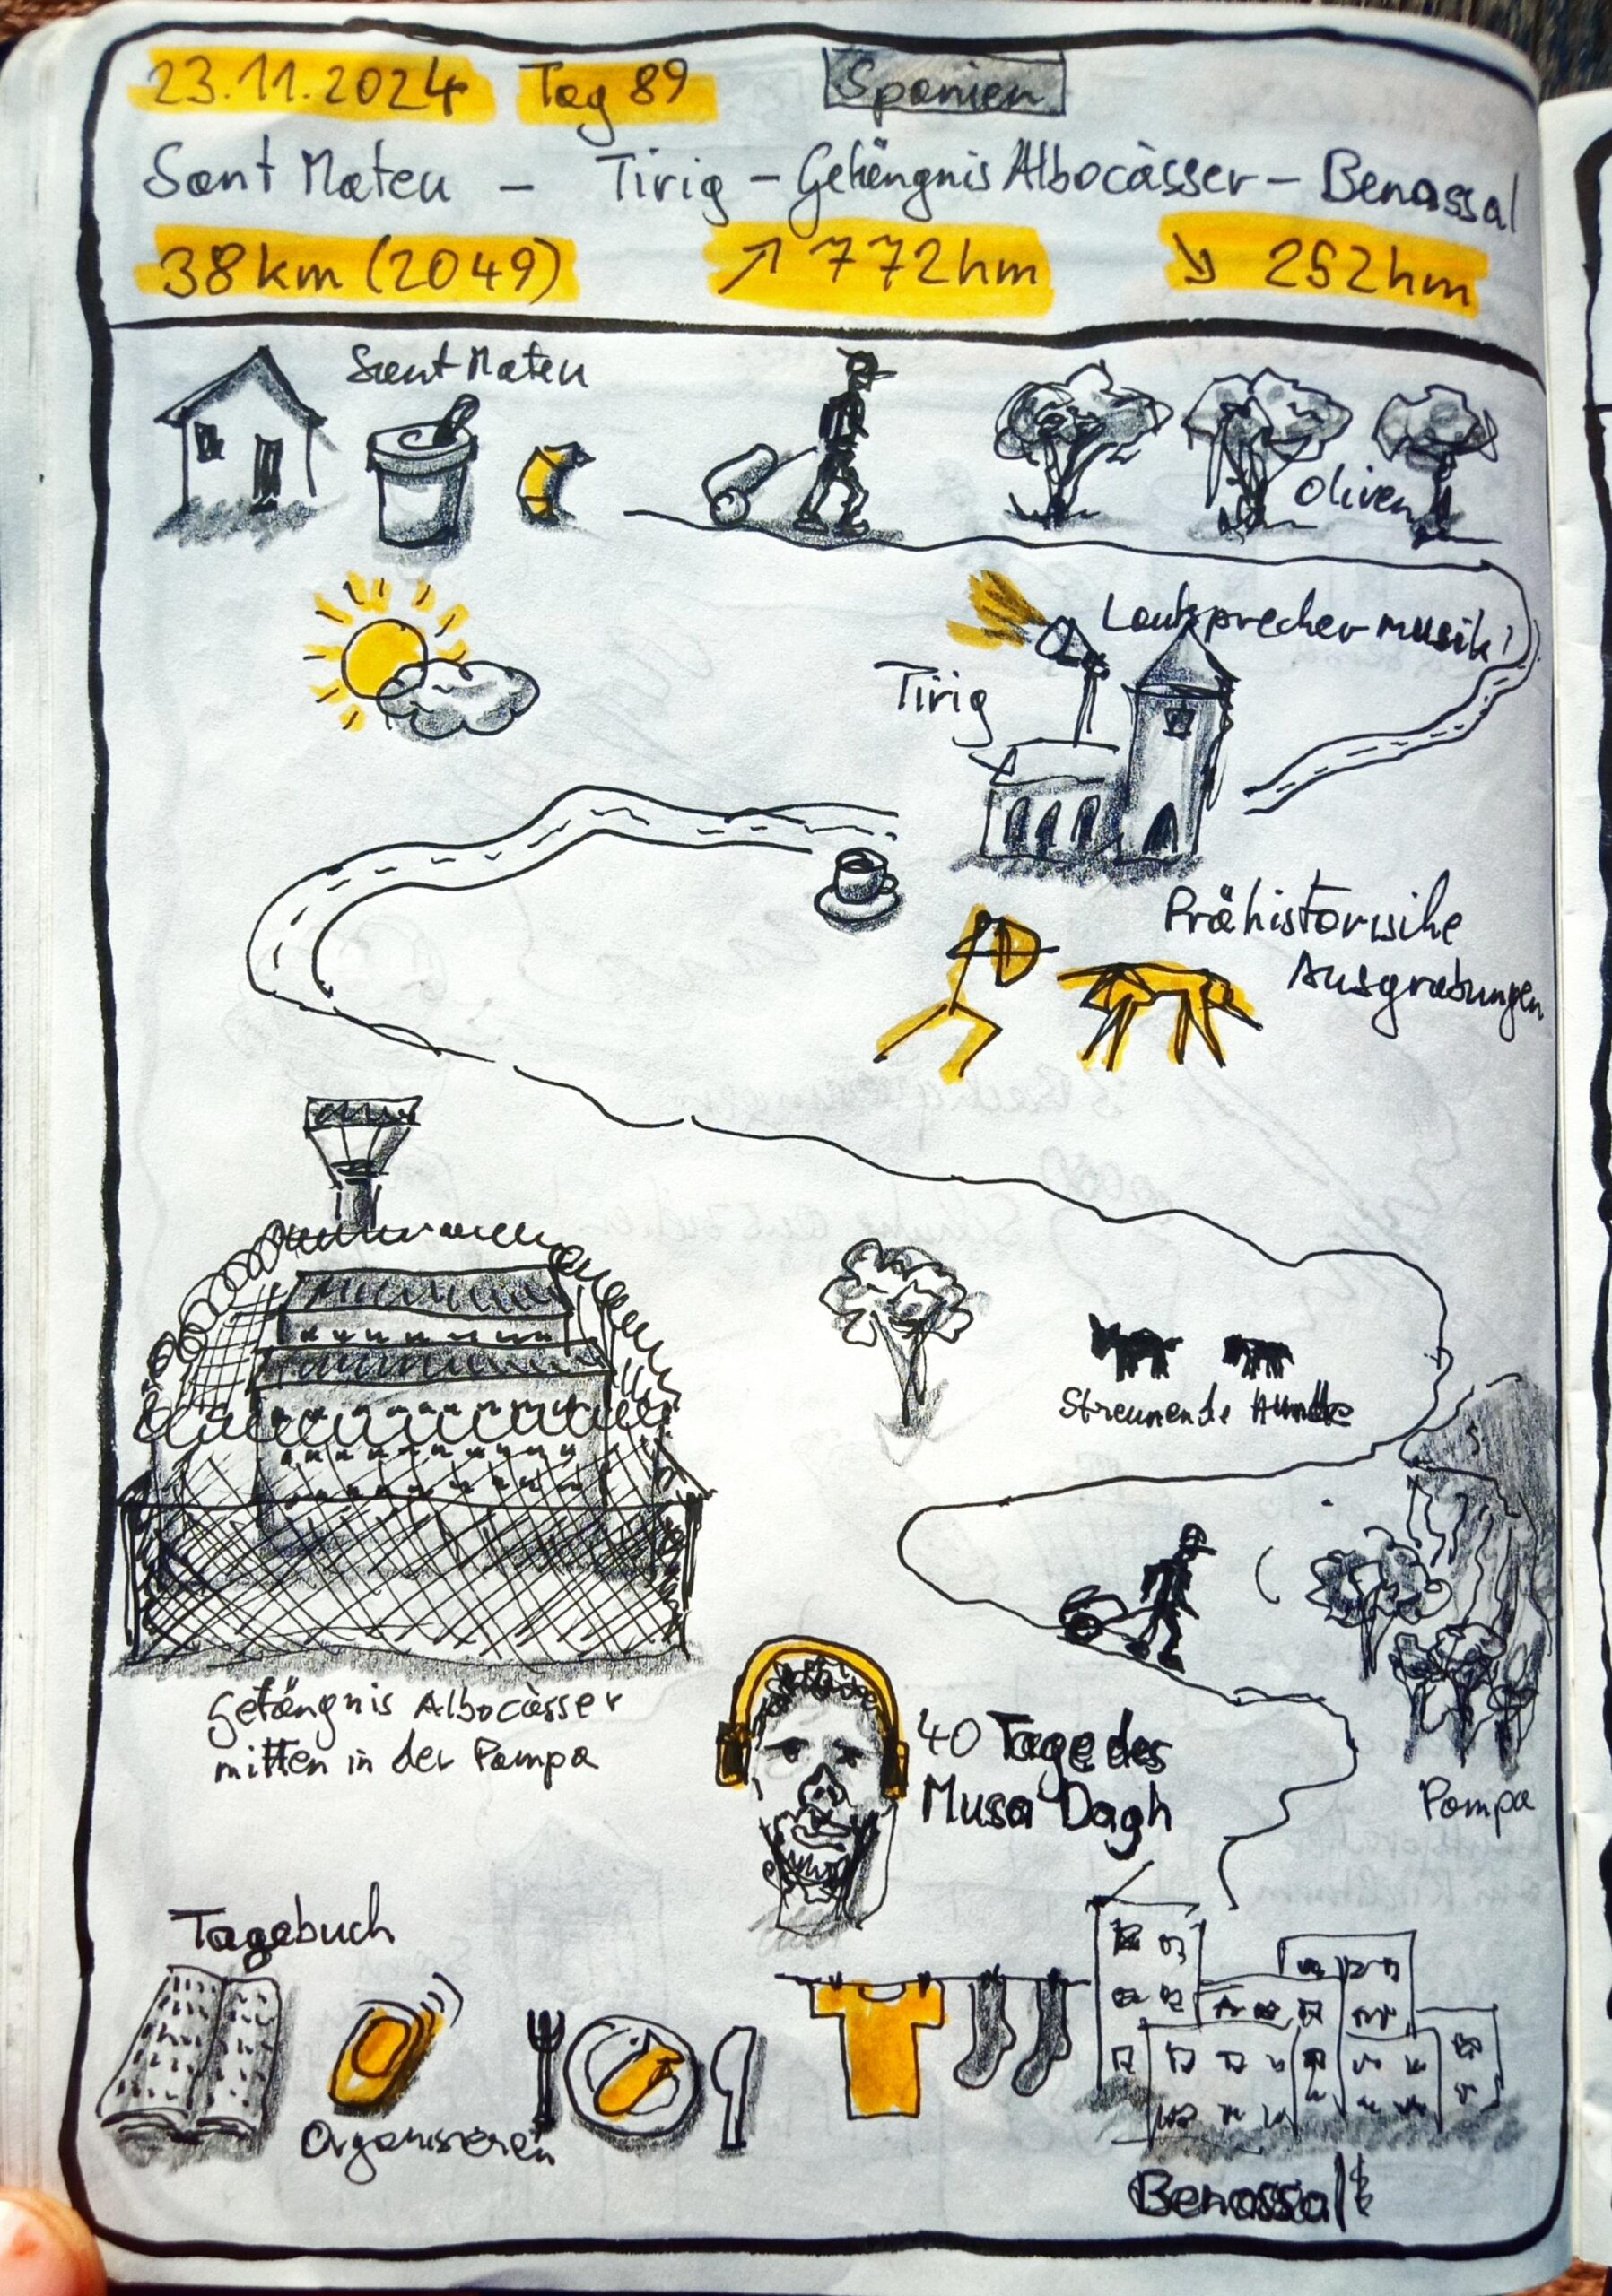 23.11.2024 Tag 89 Spanien
Sant Mateu – Tirig – Gefängnis Albocàsser – Benassal
38km (2049) ↗ 772hm ↘ 252hm
Sant Mateu
Oliven
Lautsprechermusik!
Tirig
Prähistorische
Ausgrabungen
Streunende Hunde
Gefängnis Albocàsser
mitten in der Pampa
40 Tage des
Musa Dagh
Pampa
Tagebuch
Organisieren
Benassal